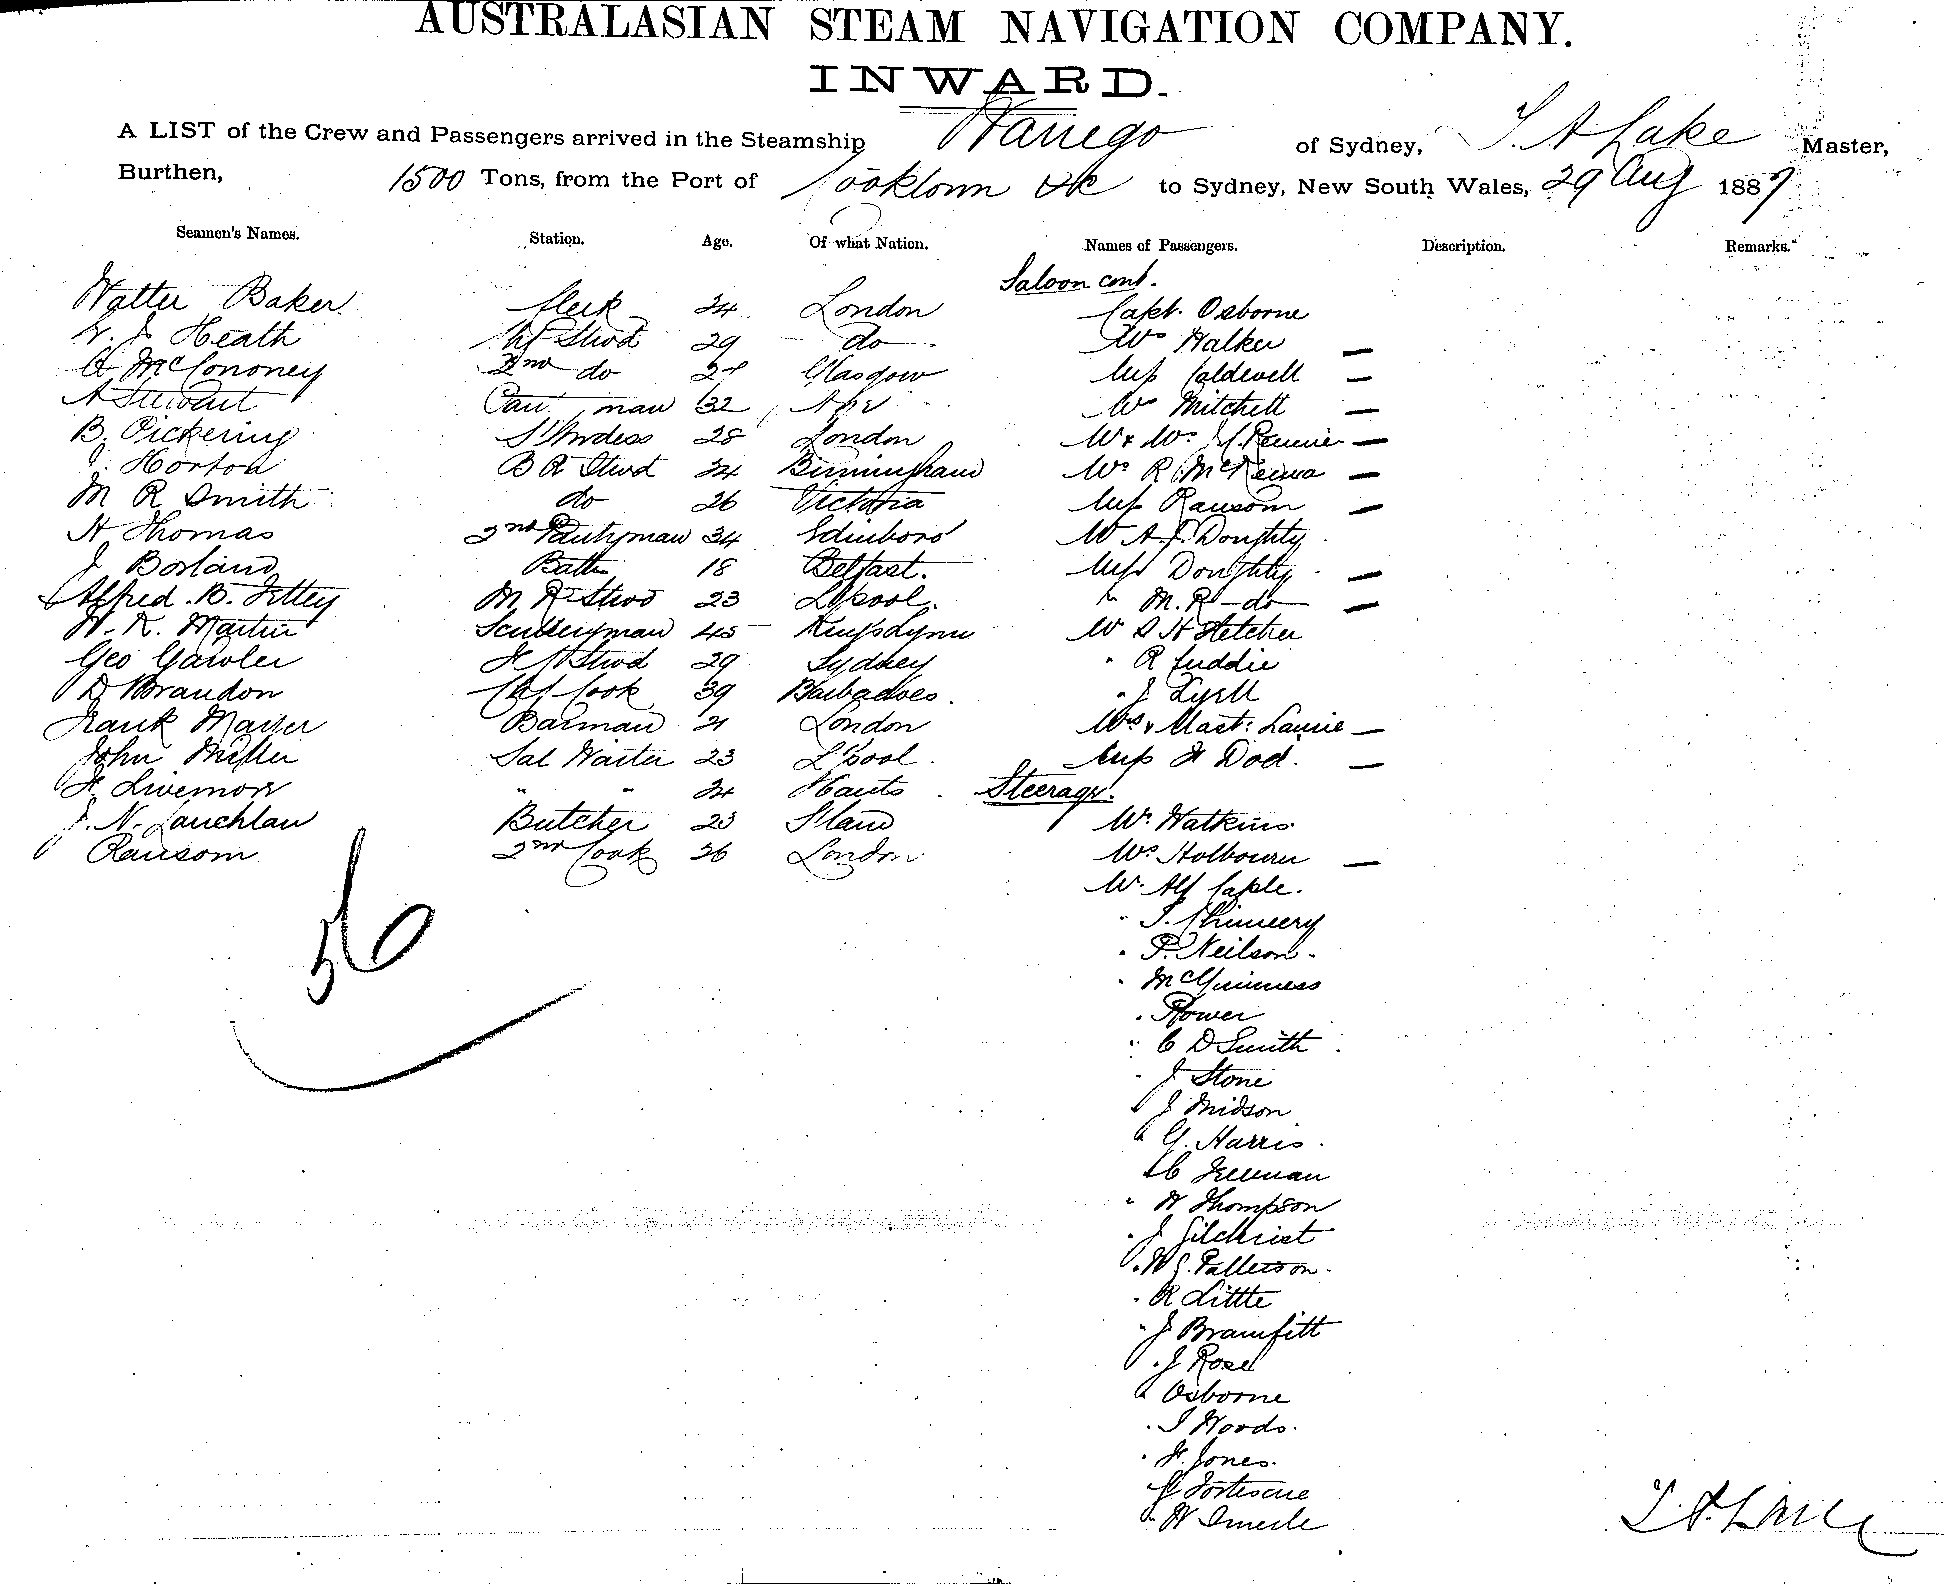 AUSTRALASIAN STEAM NAVIGATION COMPANY.
INWARD.
A LIST of the Crew and Passengers arrived in the Steamship Warrego of Sydney, T. A Lake Master,
Burthen, 1500 Tons, from the Port of Cooktown &c to Sydney, New South Wales, 29 Aug 1887
Seamen's Names. Station. Age. Of what Nation. Names of Passengers. Description. Remarks.
Saloon cont.
Walter Baker Clerk 24 London Capt. Osborne
Heath Stwd 29 do Mrs Walker —
McCononey 2nd do Glasgow Miss Caldwell —
A Stewart man 32 Mrs Mitchell —
B. Pickering St'wdess 28 London Mr & Mrs Rennie —
J. Horton B R Stwd 24 Birmingham Mrs R —
M R Smith do 26 Victoria Miss Ransom —
H Thomas 2nd Pantryman 24 Edinboro' Mr A J. Doughty
J Borland 18 Belfast. Miss Doughty —
Alfred B. M. R. Stwd 23 L'pool. " M. R — do —
W. K. Martin Sculleryman 45 Kings Lynn Mr S H Fletcher
Geo Gawler Stwd 29 Sydney " R Luddie
D Brandon Chf Cook 39 Barbadoes. " J Lyell
Frank Mayer Barman 21 London Mrs & Mast: Laurie —
John Miller Sal Waiter 23 L'pool. Miss H Dod. —
Livemore " " 24 Hants
Steerage.
J. N. Lauchlan Butcher 23 S'land Mr. Watkins
Ransom 2nd Cook 26 London Mrs Holbourn —
56
Mr. Alf Caple.
" T.
" P. Neilson.
" McGuinness
" Power
" C D Smith
" J Stone
" J Midson
" G. Harris.
" C Freeman
" W Thompson
" J Gilchrist
" W J. Patterson.
" R Little
" J Bramfitt
" J Rose
" Osborne
" J Woods.
" H. Jones.
" Fortescue
" W
T. A. Lake